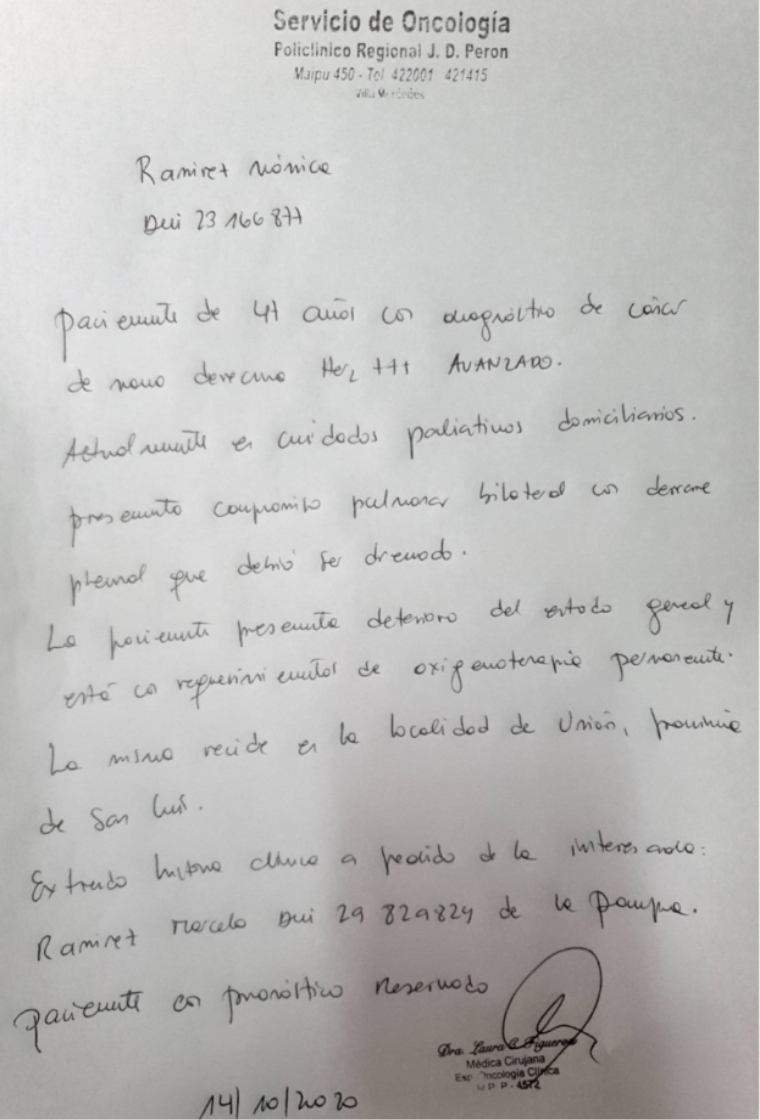 Servicio de Oncología
Policlínico Regional J. D. Peron
Maipu 450 - Tel 422001 421415
Villa Mercedes
Ramirez Mónica
DNI 23 166 877
paciente de 47 años con diagnóstico de cáncer
de mama derecha Her2 +++ AVANZADO.
Actualmente en cuidados paliativos domiciliarios.
presenta compromiso pulmonar bilateral con derrame
pleural que debió ser drenado.
La paciente presenta deterioro del estado general y
está con requerimientos de oxigenoterapia permanente.
La misma recide en la localidad de Unión, provincia
de San Luis.
Extiendo historia clínica a pedido de la interesada:
Ramirez Marcela DNI 29 829824 de la Pampa.
paciente con pronóstico reservado
Dra. Laura C. Figueroa
Médica Cirujana
Esp. Oncología Clínica
M.P.P. 4572
14/10/2020